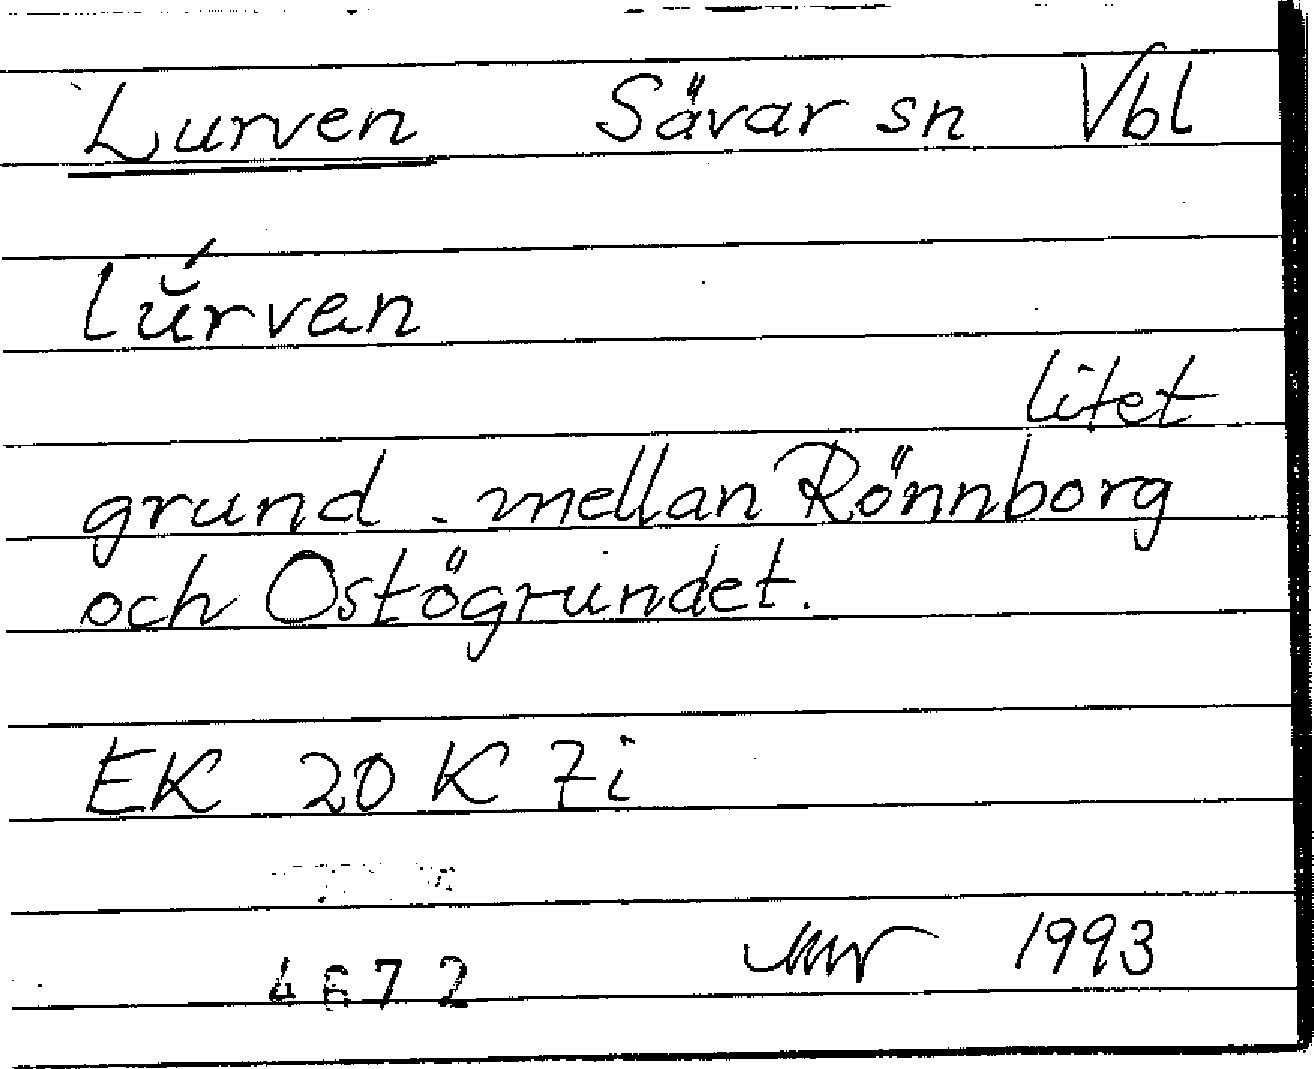 Lurven Sävar sn Vbl
lŭ́rven
litet
grund mellan Rönnborg
och Ostögrundet.
EK 20 K 7i
4672 1993